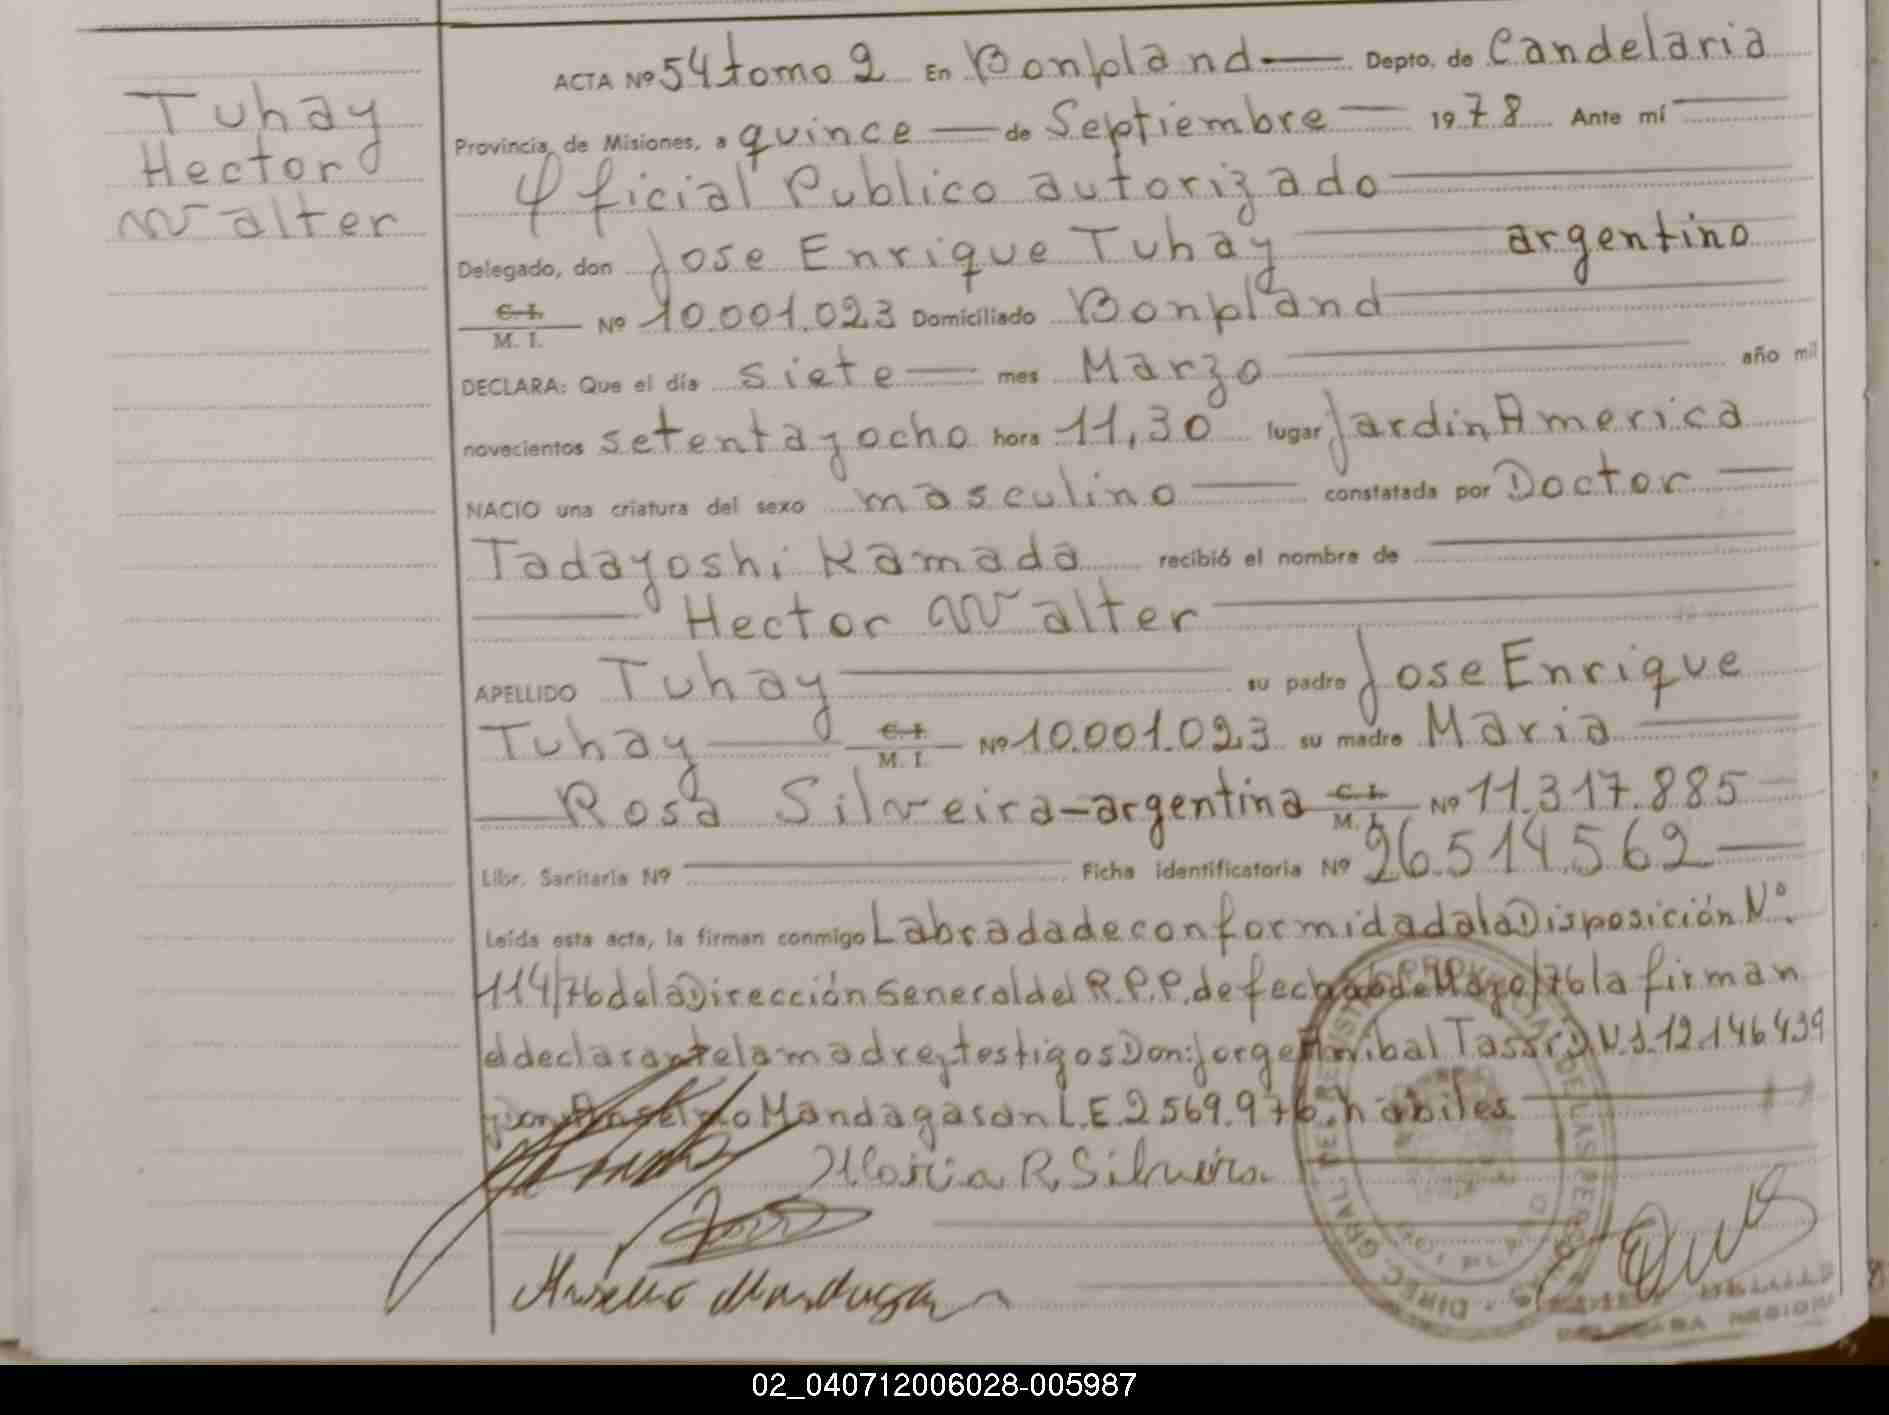 Tuhay
Hector
Walter
ACTA Nº 54 tomo 2 En Bonpland — Depto. de Candelaria
Provincia de Misiones, a quince — de Septiembre — 1978 Ante mí
Oficial Publico autorizado
Delegado, don Jose Enrique Tuhay argentino
C.I.
M. I. Nº 10.001.023 Domiciliado Bonpland
DECLARA: Que el día siete — mes Marzo año mil
novecientos setenta y ocho hora 11,30 lugar Jardin America
NACIO una criatura del sexo masculino — constatada por Doctor —
Tadayoshi Kamada recibió el nombre de
Hector Walter
APELLIDO Tuhay su padre Jose Enrique
Tuhay C.I. M. I. Nº 10.001.023 su madre Maria
Rosa Silveira - argentina C.I. M. I. Nº 11.317.885
Libr. Sanitaria Nº Ficha identificatoria Nº 26.514.562
Leída esta acta, la firman conmigo Labrada de conformidad a la Disposición Nº
114/76 de la Dirección General del R.P.P. de fecha de Mayo/76 la firman
el declarante la madre y testigos Don: Jorge Anibal 12.146.439
y don Anselmo Mandagasan L.E. 2569.976, habiles
Maria R. Silveira
Anselmo
DIREC. GRAL. DEL REGISTRO DE LAS PERSONAS
02_040712006028-005987